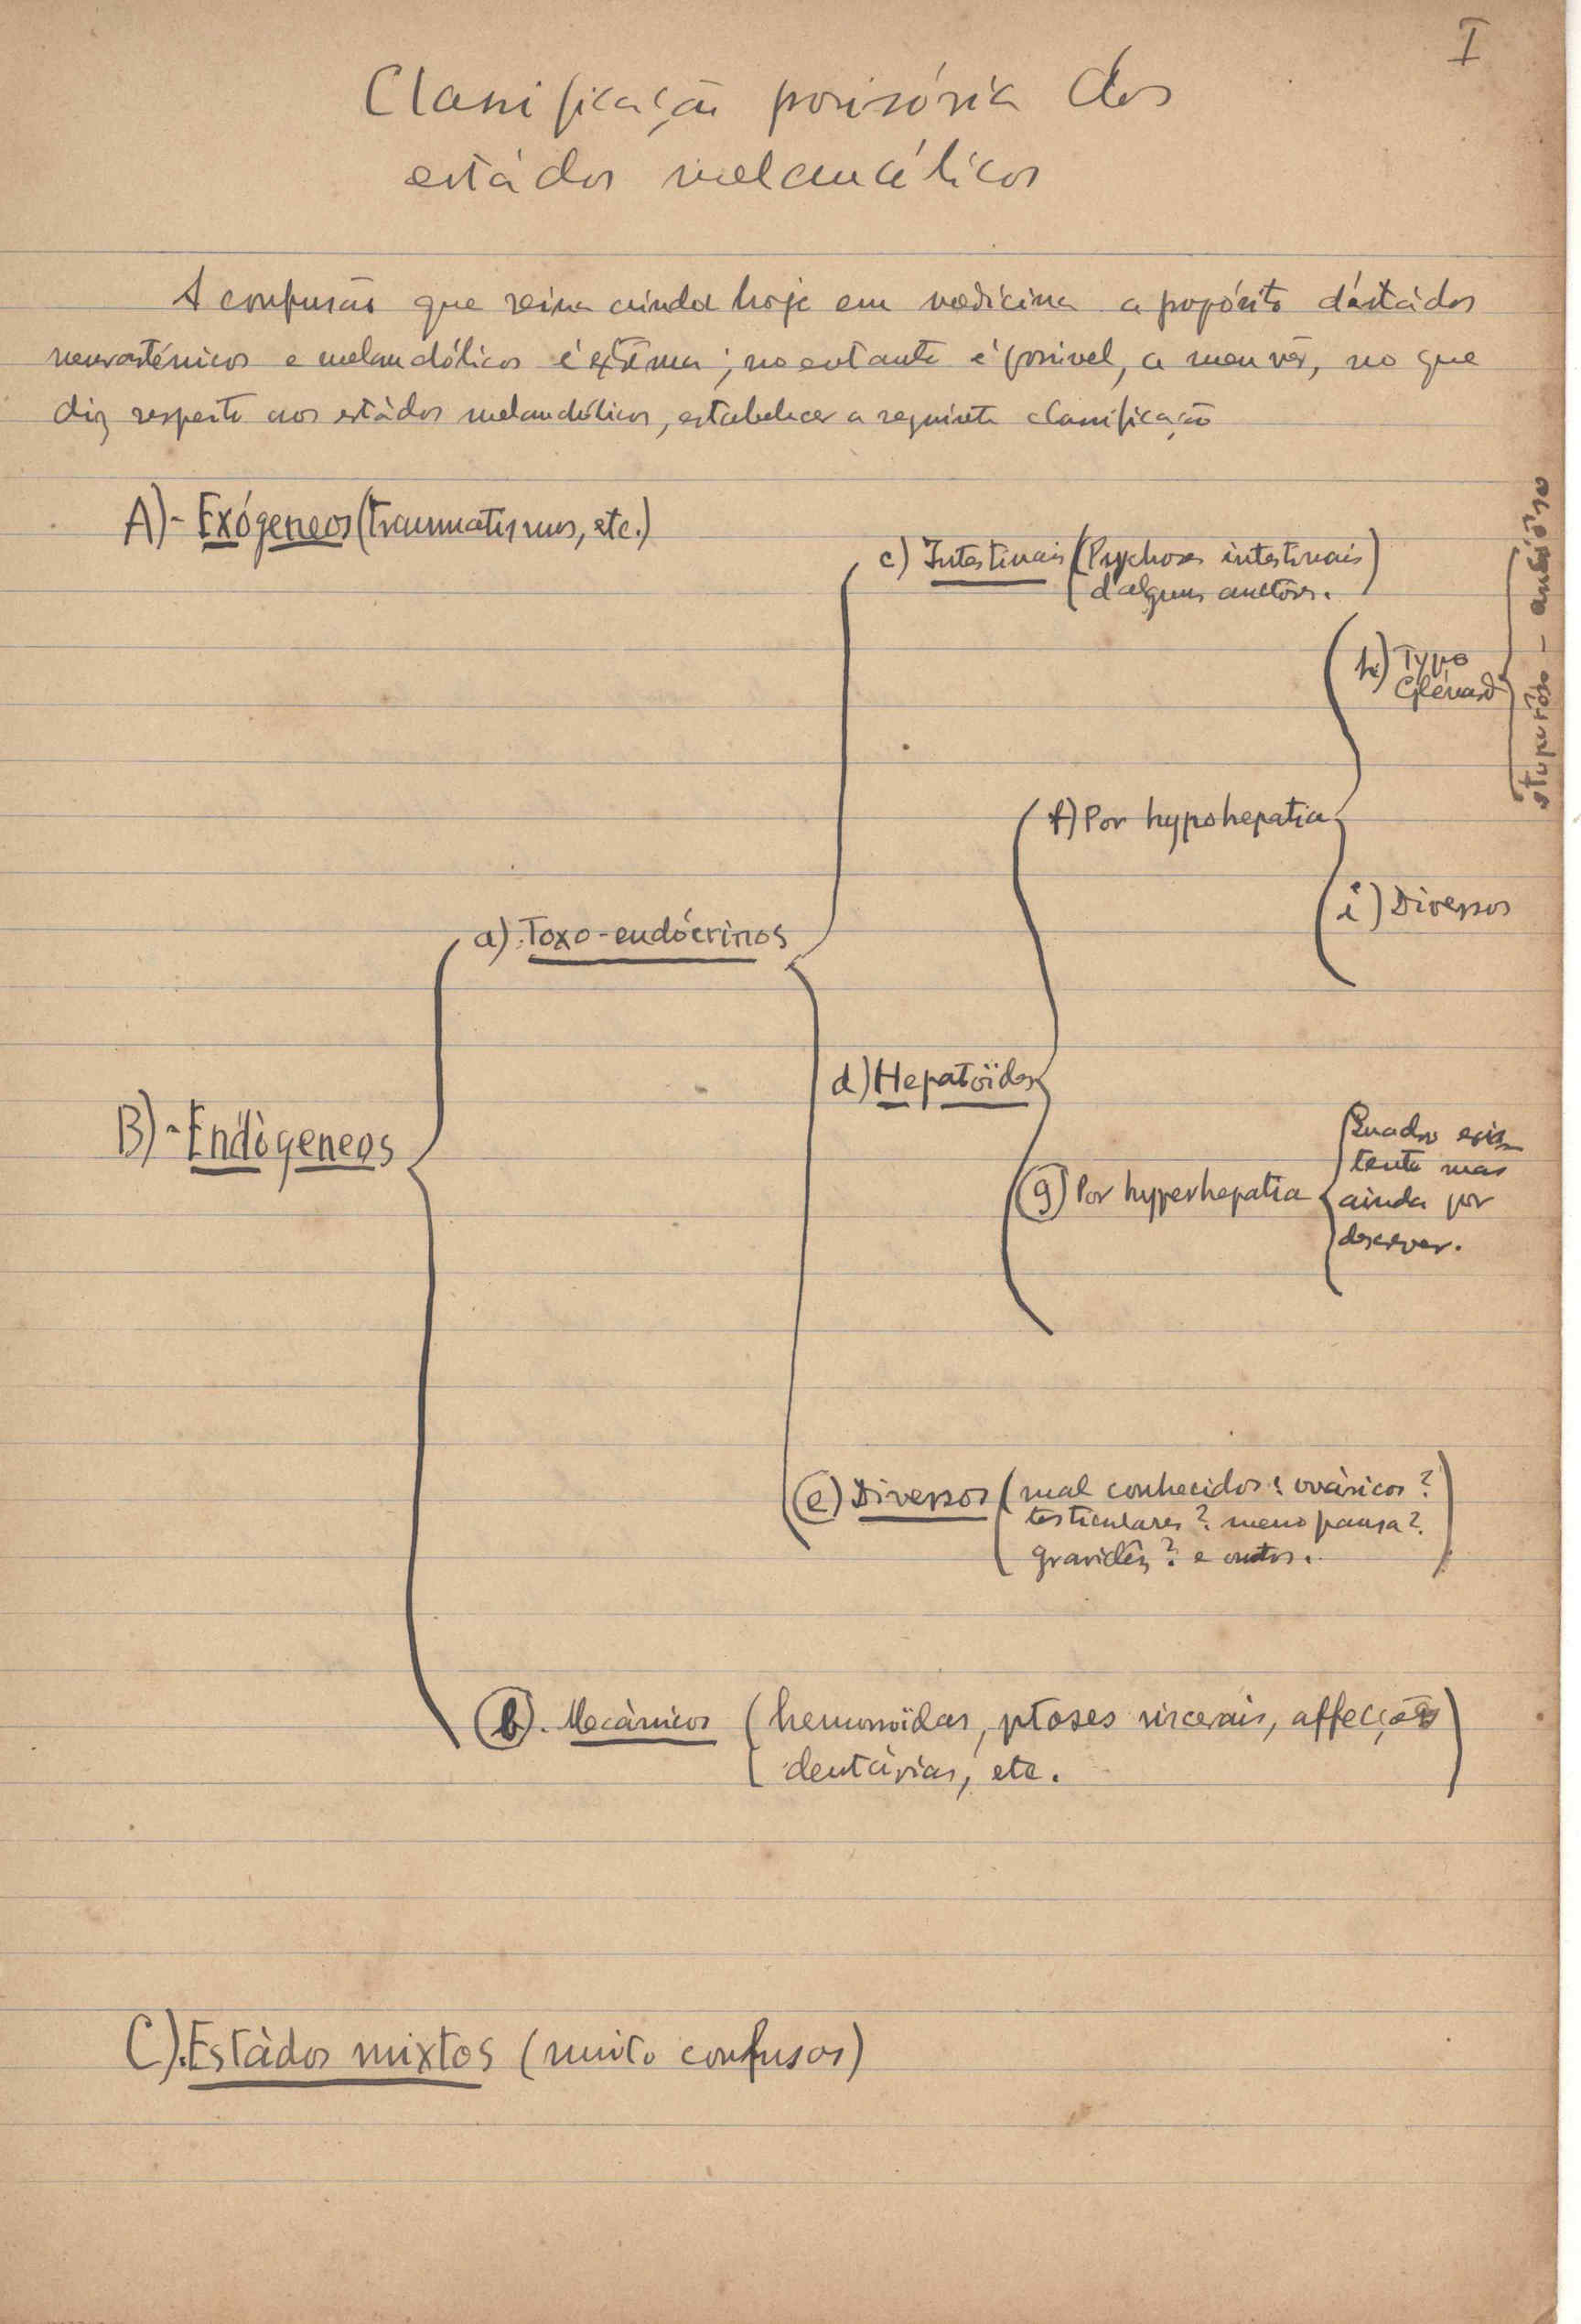 I
Classificação provisória dos
estádos melancólicos
A confusão que reina ainda hoje em medicina a propósito d'estádos
neurasténicos e melancólicos é extrema; no entanto é possivel, a meu vêr, no que
diz respeito aos estàdos melancólicos, estabelecer a seguinte classificação
A)- Exógeneos (traumatismos, etc.)
c) Intestinais (Psychoses intestinais
d'alguns auctôres.)
h) Typo
Glénard
stupurôso - ansiôso
f) Por hypohepatia
i) Diversos
a) Toxo-endócrinos
d) Hepatoïdes
B)- Endògeneos
g) Por hyperhepatia
Quadro exis-
tente mas
ainda por
descrever.
e) Diversos (mal conhecidos: ovàricos?
testiculares? menopausa?
gravidêz? e outros.)
b). Mecànicos (hemorroïdas, ptoses viscerais, affecções
dentàrias, etc.)
C). Estàdos mixtos (muito confusos)